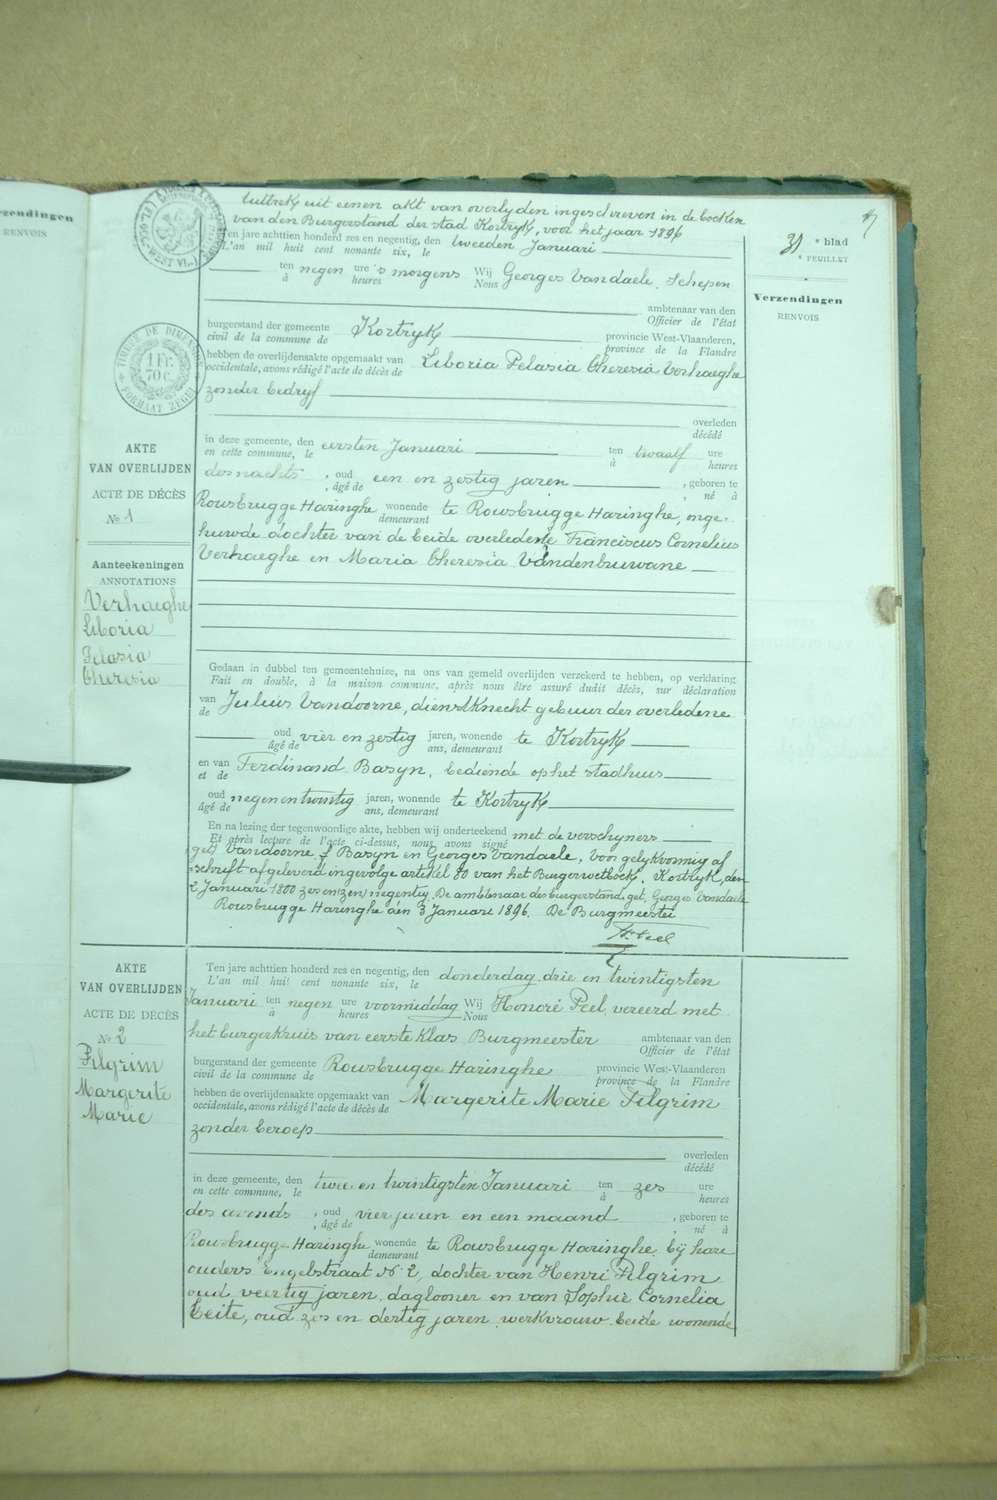 Verzendingen
RENVOIS
Uittrek uit eenen akt van overlyden ingeschreven in de boeken
van den Burgerstand der stad Kortryk, voor het jaar 1896
Ten jare achttien honderd zes en negentig, den tweeden Januari
L'an mil huit cent nonante six, le
ten negen ure 's morgens Wij Georges Vandaele, Schepen
à heures Nous
ambtenaar van den
Officier de l'état
burgerstand der gemeente Kortryk provincie West-Vlaanderen,
civil de la commune de province de la Flandre
hebben de overlijdensakte opgemaakt van Liboria Pelasia Theresia Verhaeghe
occidentale, avons rédigé l'acte de décès de
zonder bedryf
overleden
décédé
in deze gemeente, den eersten Januari ten twaalf ure
en cette commune, le à heures
des nachts, oud een en zestig jaren, geboren te
, âgé de , né à
Rousbrugge Haringhe wonende te Rousbrugge Haringhe, onge-
demeurant
huwde dochter van de beide overledene Franciscus Cornelius
Verhaeghe en Maria Theresia Vandenbuwane
Gedaan in dubbel ten gemeentehuize, na ons van gemeld overlijden verzekerd te hebben, op verklaring
Fait en double, à la maison commune, après nous être assuré dudit décès, sur déclaration
van Julius Vandoorne, dienstknecht gebuur der overledene
de
oud vier en zestig jaren, wonende te Kortryk
âgé de ans, demeurant
en van Ferdinand Basyn, bediende op het stadhuis
et de
oud negen en twintig jaren, wonende te Kortryk
âgé de ans, demeurant
En na lezing der tegenwoordige akte, hebben wij onderteekend met de verschyners
Et après lecture de l'acte ci-dessus, nous avons signé
get) Vandoorne, f Basyn en Georges Vandaele, Voor gelykvormig af
schrift afgeleverd ingevolge artikel 80 van het Burgerwetboek. Kortryk, den
2 Januari 1800 zes en (zen) negentig. De ambtenaar des burgerstand get. Georges Vandaele
Rousbrugge Haringhe den 3 Januari 1896. De Burgmeester
H. Peel
TIMBRE DE DIMENSION
1 FR.
70 C.
FORMAAT ZEGEL
AKTE
VAN OVERLIJDEN
ACTE DE DÉCÈS
No 1
Aanteekeningen
ANNOTATIONS
Verhaeghe
Liboria
Pelasia
Theresia
31e blad
e FEUILLET
Verzendingen
RENVOIS
AKTE
VAN OVERLIJDEN
ACTE DE DÉCÈS
No 2
Pilgrim
Margerite
Marie
Ten jare achttien honderd zes en negentig, den donderdag drie en twintigsten
L'an mil huit cent nonante six, le
Januari ten negen ure voormiddag Wij Honoré Peel, vereerd met
à heures Nous
het burgerkruis van eerste klas Burgmeester ambtenaar van den
Officier de l'état
burgerstand der gemeente Rousbrugge Haringhe provincie West-Vlaanderen
civil de la commune de province de la Flandre
hebben de overlijdensakte opgemaakt van Margerite Marie Pilgrim
occidentale, avons rédigé l'acte de décès de
zonder beroep
overleden
décédé
in deze gemeente, den twee en twintigsten Januari ten zes ure
en cette commune, le à heures
des avonds, oud vier jaren en een maand, geboren te
, âgé de , né à
Rousbrugge Haringhe wonende te Rousbrugge Haringhe, bij hare
demeurant
ouders Engelstraat No 2, dochter van Henri Pilgrim
oud veertig jaren, daglooner en van Sophie Cornelia
Beite, oud zes en dertig jaren, werkvrouw, beide wonende